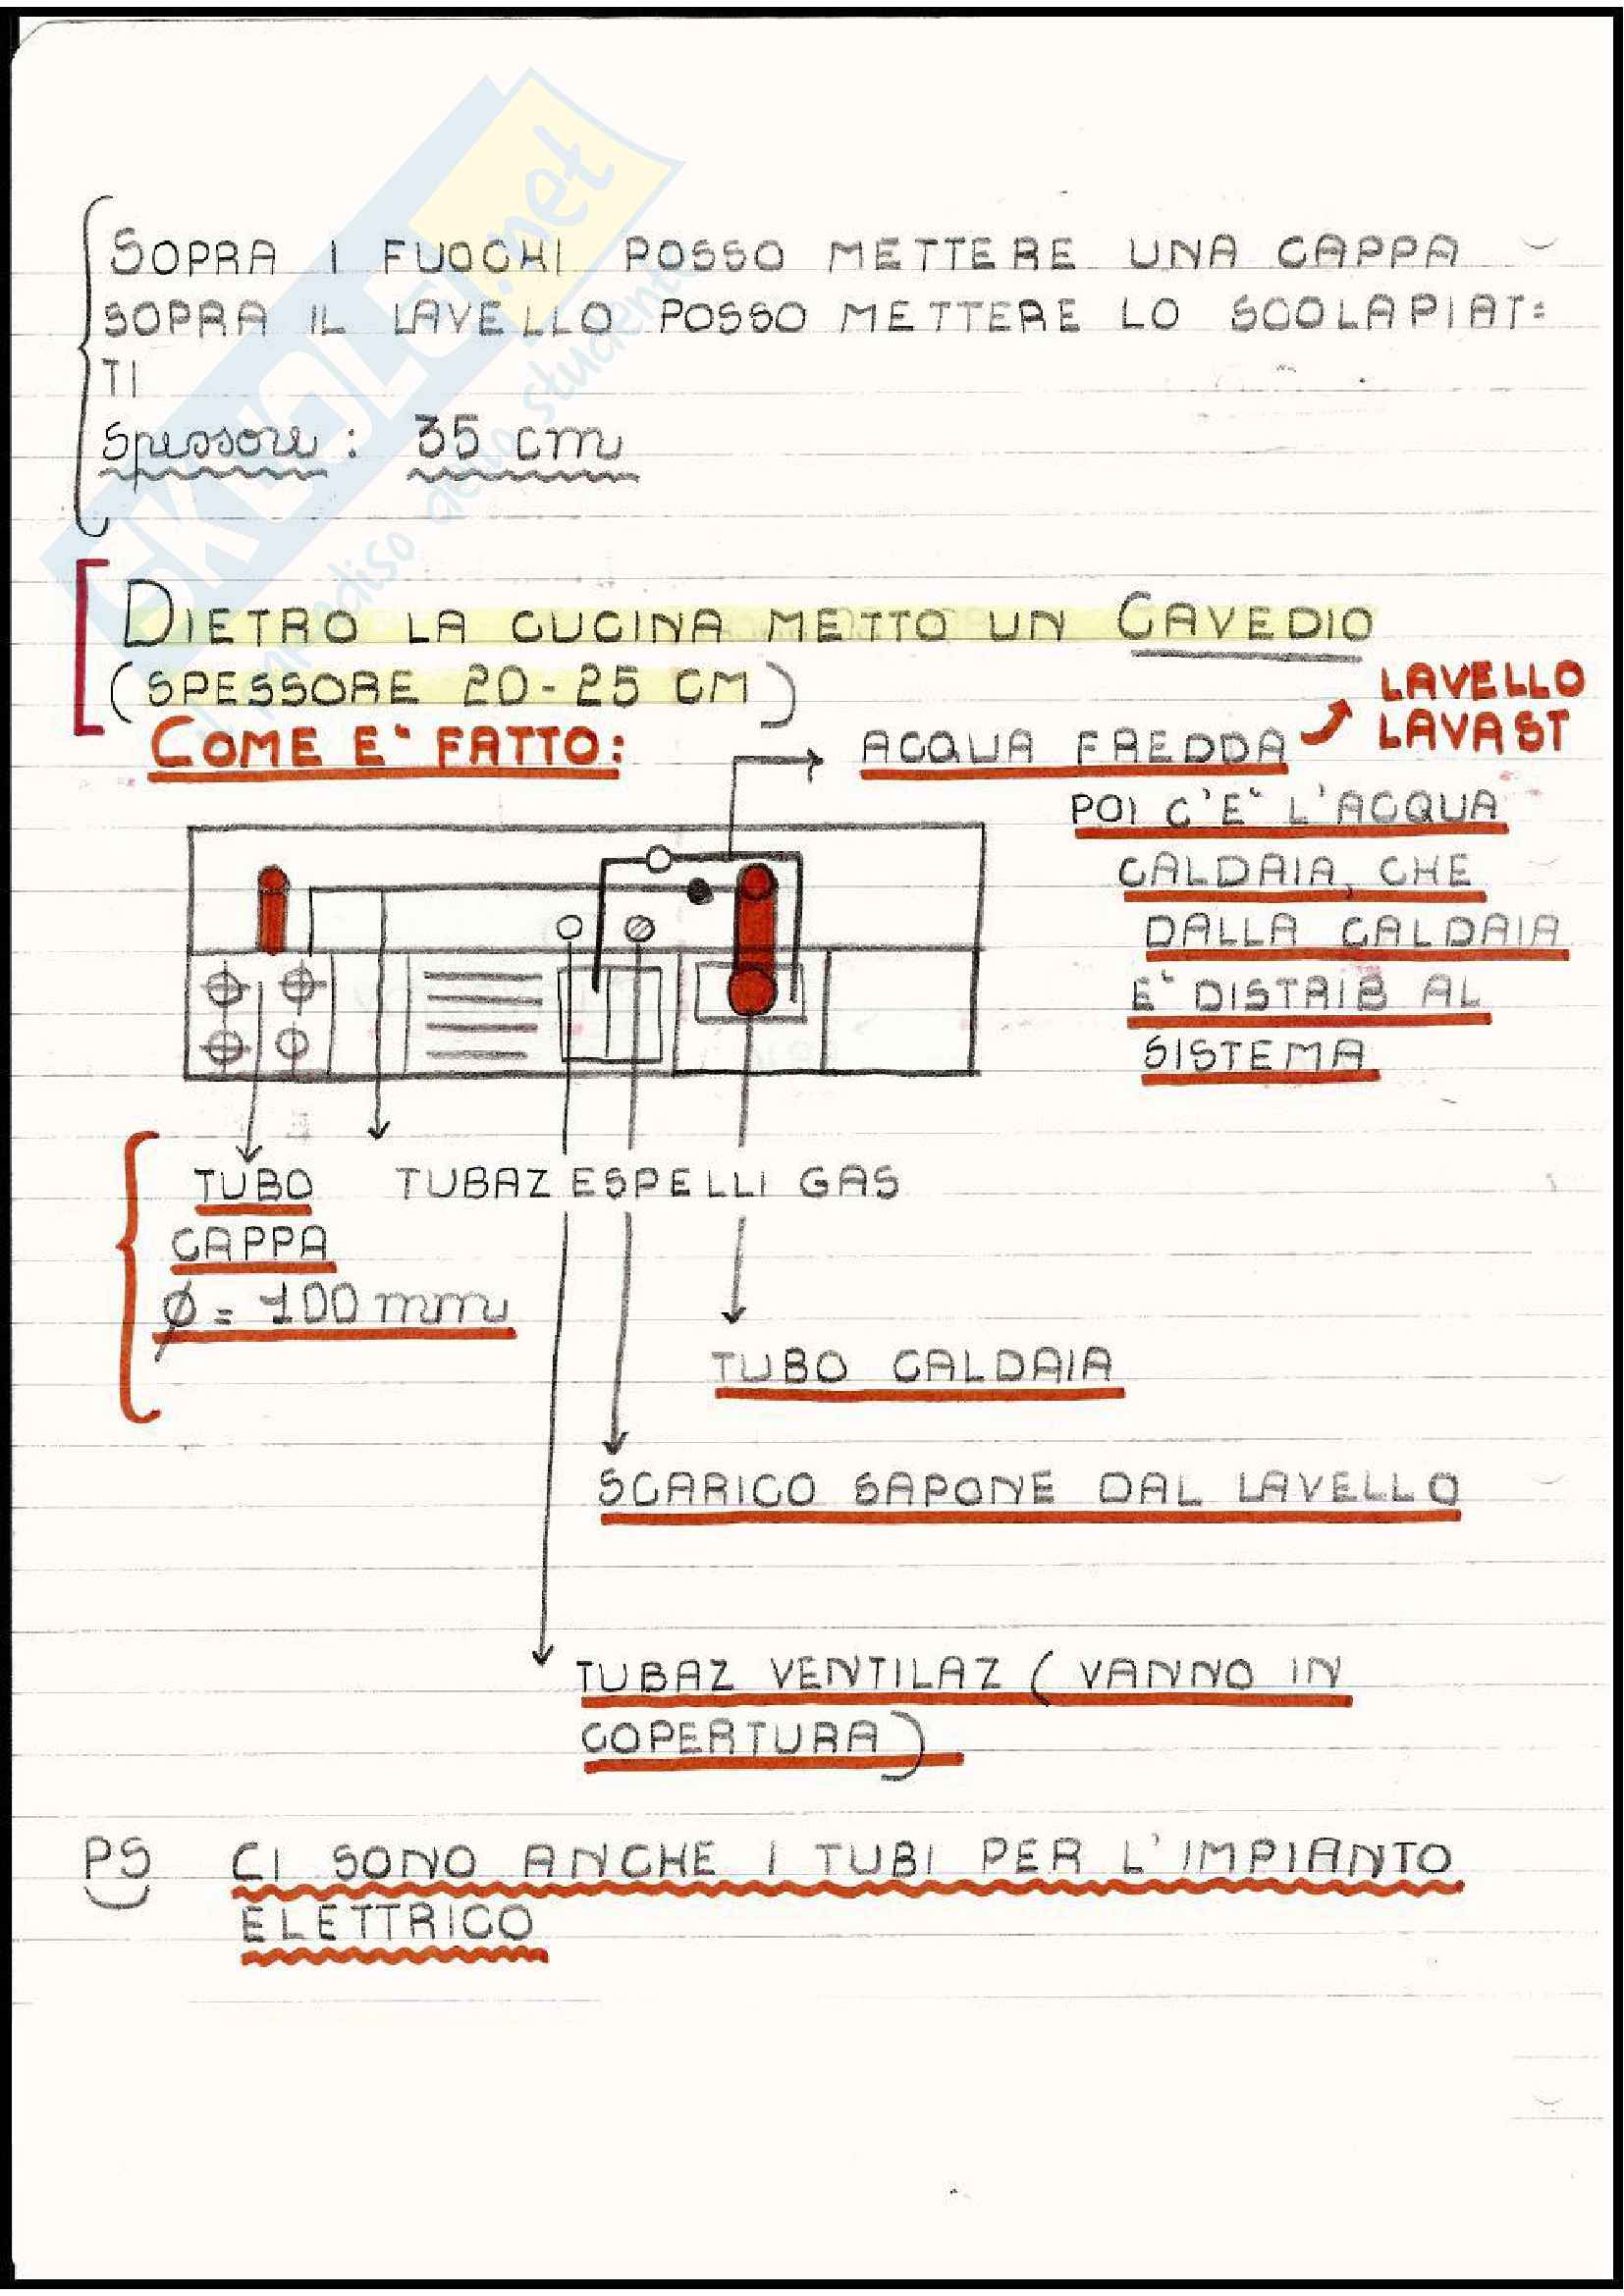 SOPRA I FUOCHI POSSO METTERE UNA CAPPA
SOPRA IL LAVELLO POSSO METTERE LO SCOLAPIAT=
TI
Spessore: 35 cm
DIETRO LA CUCINA METTO UN CAVEDIO
(SPESSORE 20-25 CM)
LAVELLO
LAVAST
COME E' FATTO:
ACQUA FREDDA
POI C'E' L'ACQUA
CALDAIA, CHE
DALLA CALDAIA
E' DISTRIB AL
SISTEMA
TUBO
CAPPA
Ø= 100 mm
TUBAZ ESPELLI GAS
TUBO CALDAIA
SCARICO SAPONE DAL LAVELLO
TUBAZ VENTILAZ (VANNO IN
COPERTURA)
PS CI SONO ANCHE I TUBI PER L'IMPIANTO
ELETTRICO
SKUOLA.net